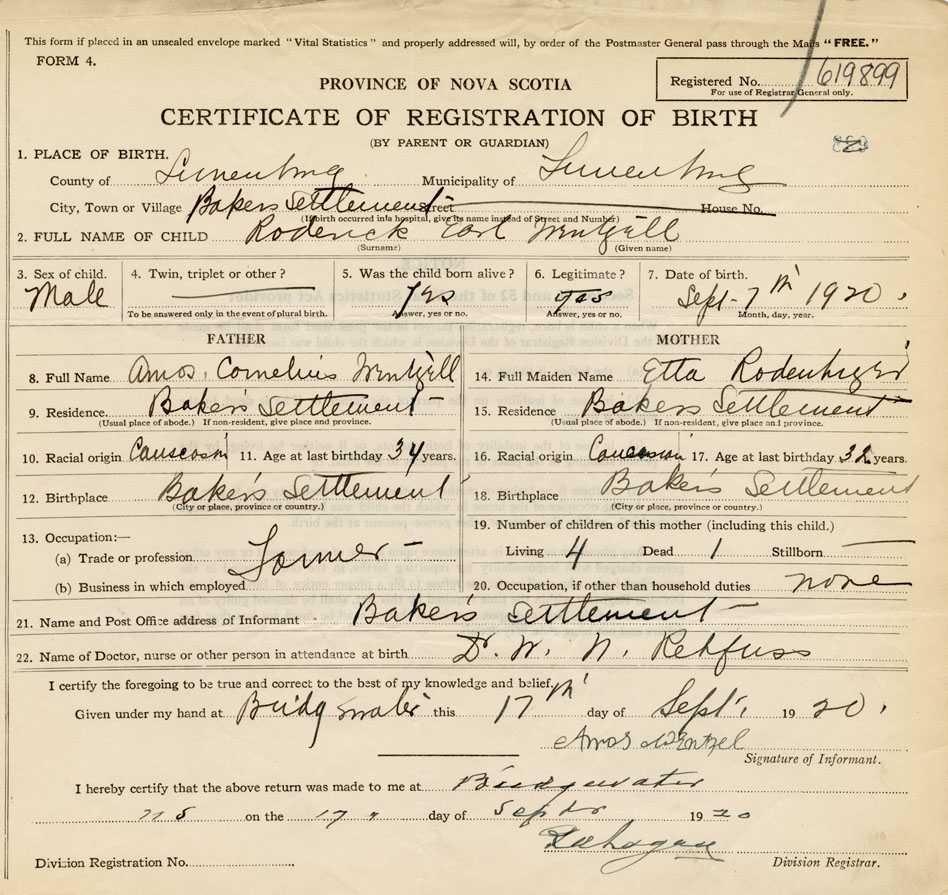 This form if placed in an unsealed envelope marked "Vital Statistics" and properly addressed will, by order of the Postmaster General pass through the Mails "FREE."
FORM 4.
Registered No. 619899
For use of Registrar General only.
PROVINCE OF NOVA SCOTIA
CERTIFICATE OF REGISTRATION OF BIRTH
(BY PARENT OR GUARDIAN)
1. PLACE OF BIRTH.
County of Lunenburg Municipality of Lunenburg
City, Town or Village Bakers Settlement Street House No.
(If birth occurred in a hospital, give its name instead of Street and Number)
2. FULL NAME OF CHILD Roderick Earl Wentzell
(Surname) (Given name)
3. Sex of child. 4. Twin, triplet or other? 5. Was the child born alive? 6. Legitimate? 7. Date of birth.
Male yes yes Sept- 7th 1920.
To be answered only in the event of plural birth. Answer, yes or no. Answer, yes or no. Month, day, year.
FATHER MOTHER
8. Full Name Amos. Cornelius Wentzell 14. Full Maiden Name Etta Rodenhizer
9. Residence. Baker's Settlement 15. Residence Bakers Settlement
(Usual place of abode.) If non-resident, give place and province. (Usual place of abode.) If non-resident, give place and province.
10. Racial origin 11. Age at last birthday 34 years. 16. Racial origin 17. Age at last birthday 32 years.
12. Birthplace Baker's Settlement 18. Birthplace Baker's Settlement
(City or place, province or country.) (City or place, province or country.)
13. Occupation:— 19. Number of children of this mother (including this child.)
(a) Trade or profession Living 4 Dead 1 Stillborn
(b) Business in which employed 20. Occupation, if other than household duties none
21. Name and Post Office address of Informant Baker's Settlement
22. Name of Doctor, nurse or other person in attendance at birth Dr. W. N. Rehfuss
I certify the foregoing to be true and correct to the best of my knowledge and belief.
Given under my hand at Bridgewater this 17th day of Sept. 1920.
Amos Wentzel
Signature of Informant.
I hereby certify that the above return was made to me at Bridgewater
N S on the 17 " day of Septr 1920
Division Registration No. Division Registrar.